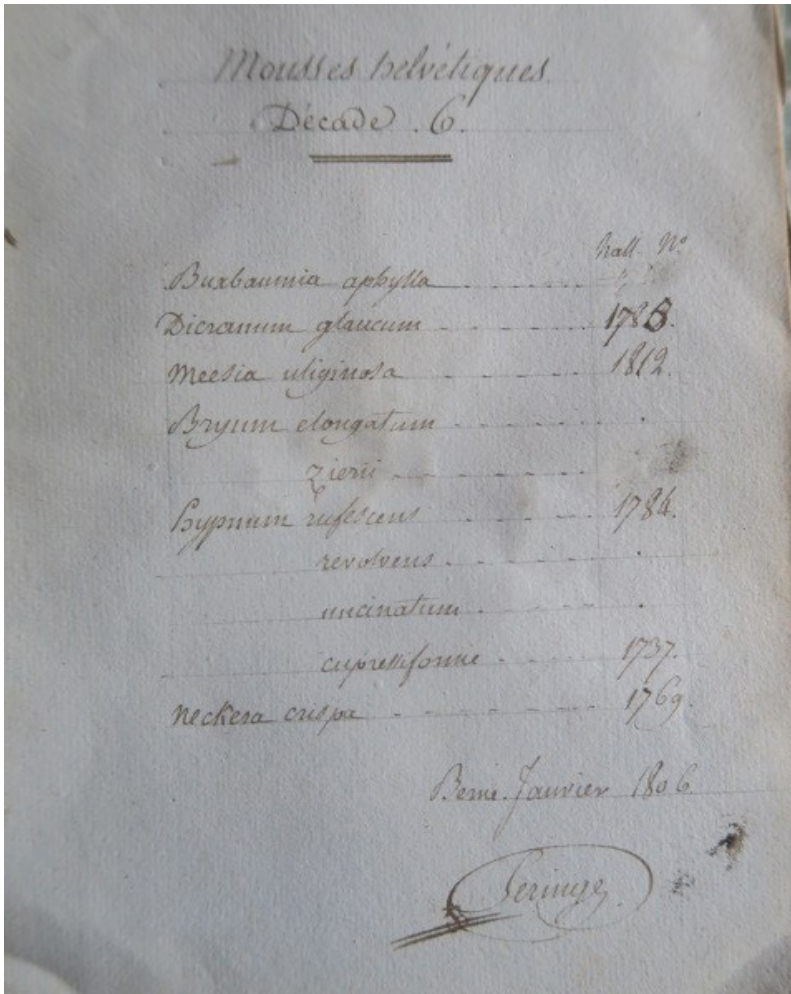 Mousses helvétiques
Décade . 6.
hall. No
Buxbaumia aphylla
Dicranum glaucum 1788.
Meesia uliginosa 1812.
Bryum elongatum
zierii
hypnum rufescens 1784.
revolvens
uncinatum
cupressiforme 1737.
Neckera crispa 1769.
Berne. Janvier 1806